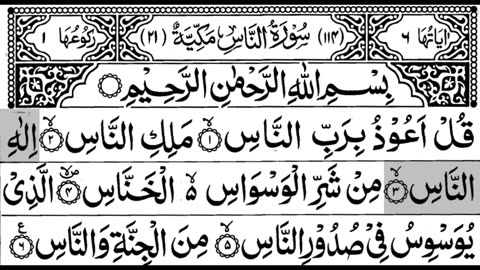 اٰيَاتُهَا ٦ (١١٤) سُوْرَةُ النَّاسِ مَكِّيَّةٌ (٢١) رُكُوْعُهَا ١
بِسْمِ اللهِ الرَّحْمٰنِ الرَّحِيْمِ
قُلْ اَعُوْذُ بِرَبِّ النَّاسِ ١ مَلِكِ النَّاسِ ٢ اِلٰهِ
النَّاسِ ٣ مِنْ شَرِّ الْوَسْوَاسِ ەۙ الْخَنَّاسِ ٤ الَّذِىْ
يُوَسْوِسُ فِىْ صُدُوْرِ النَّاسِ ٥ مِنَ الْجِنَّةِ وَالنَّاسِ ٦